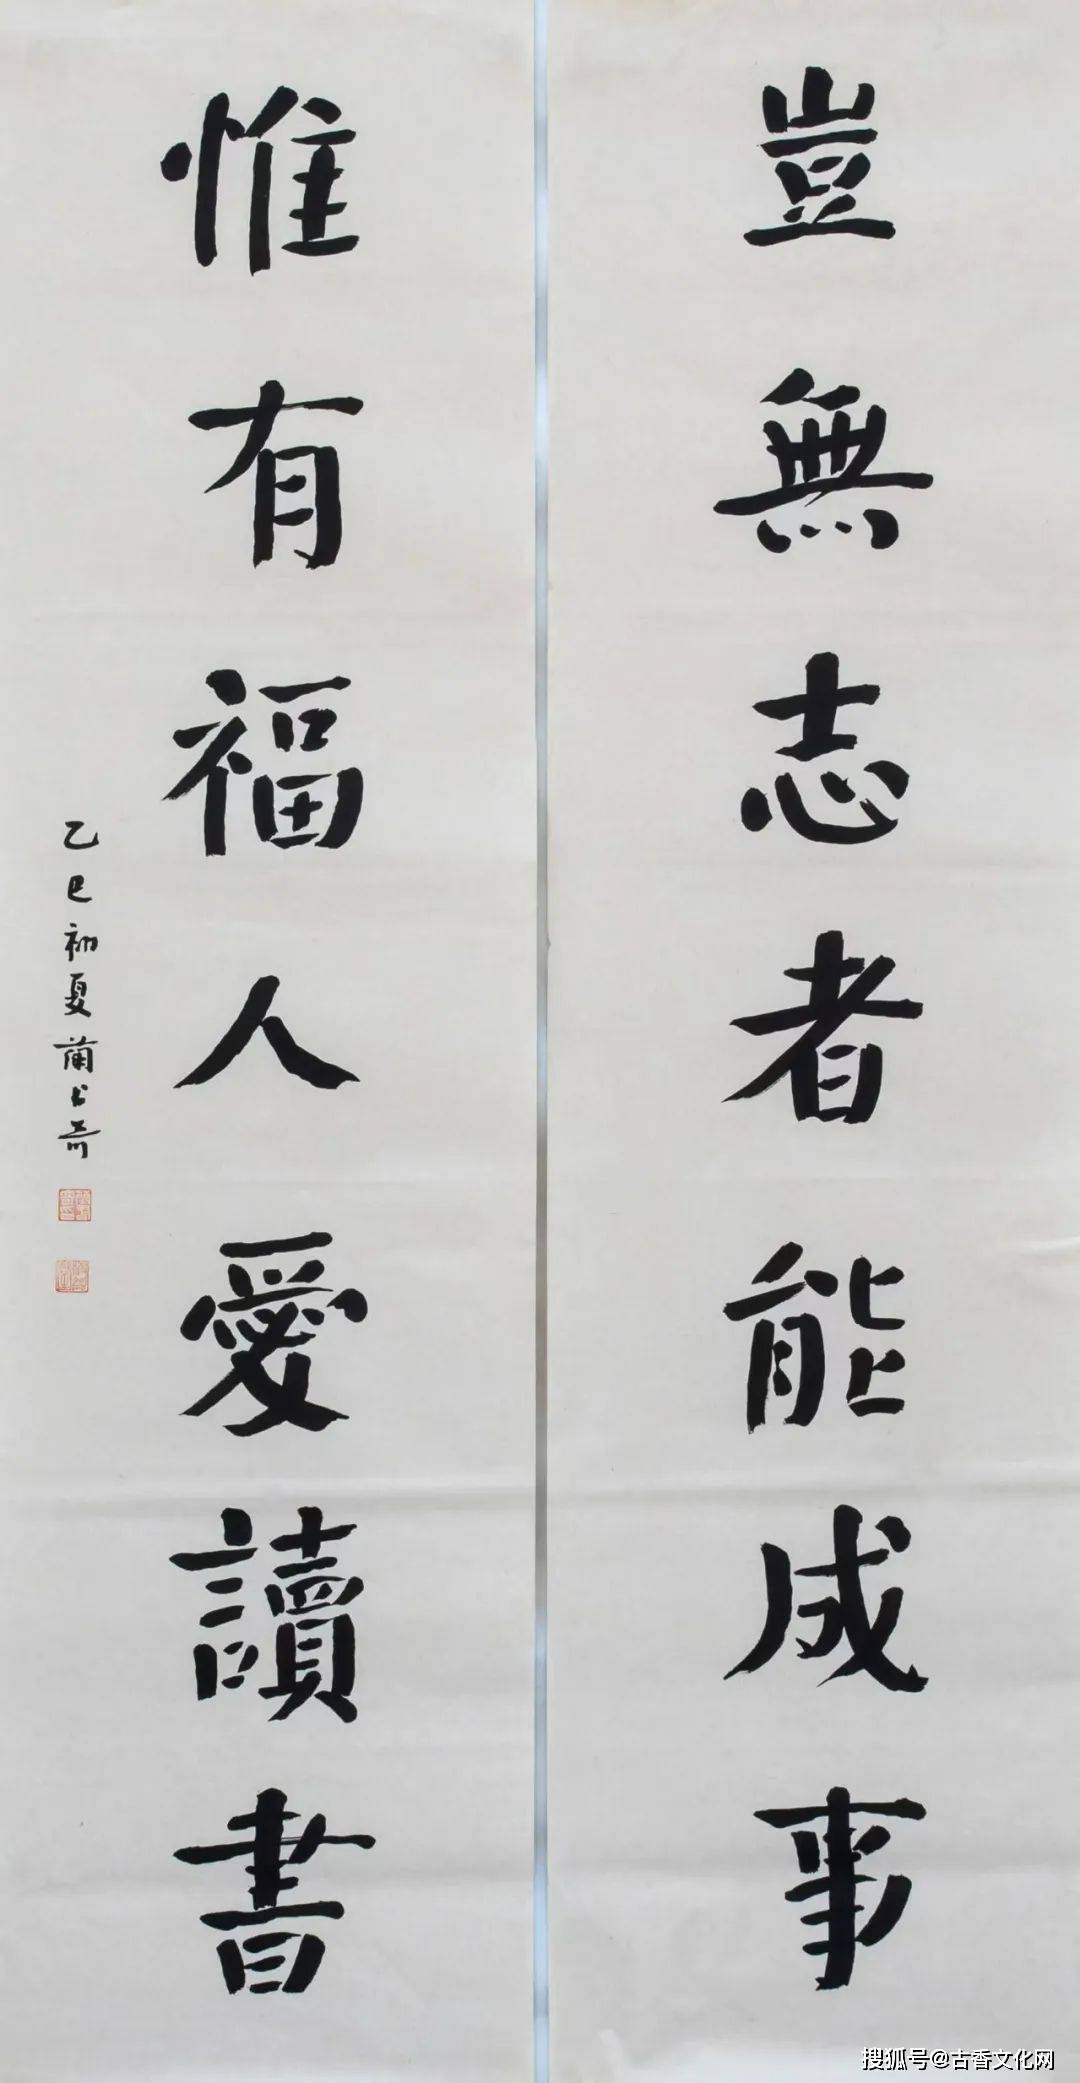 豈無志者能成事
惟有福人愛讀書
乙巳初夏
搜狐号@古香文化网